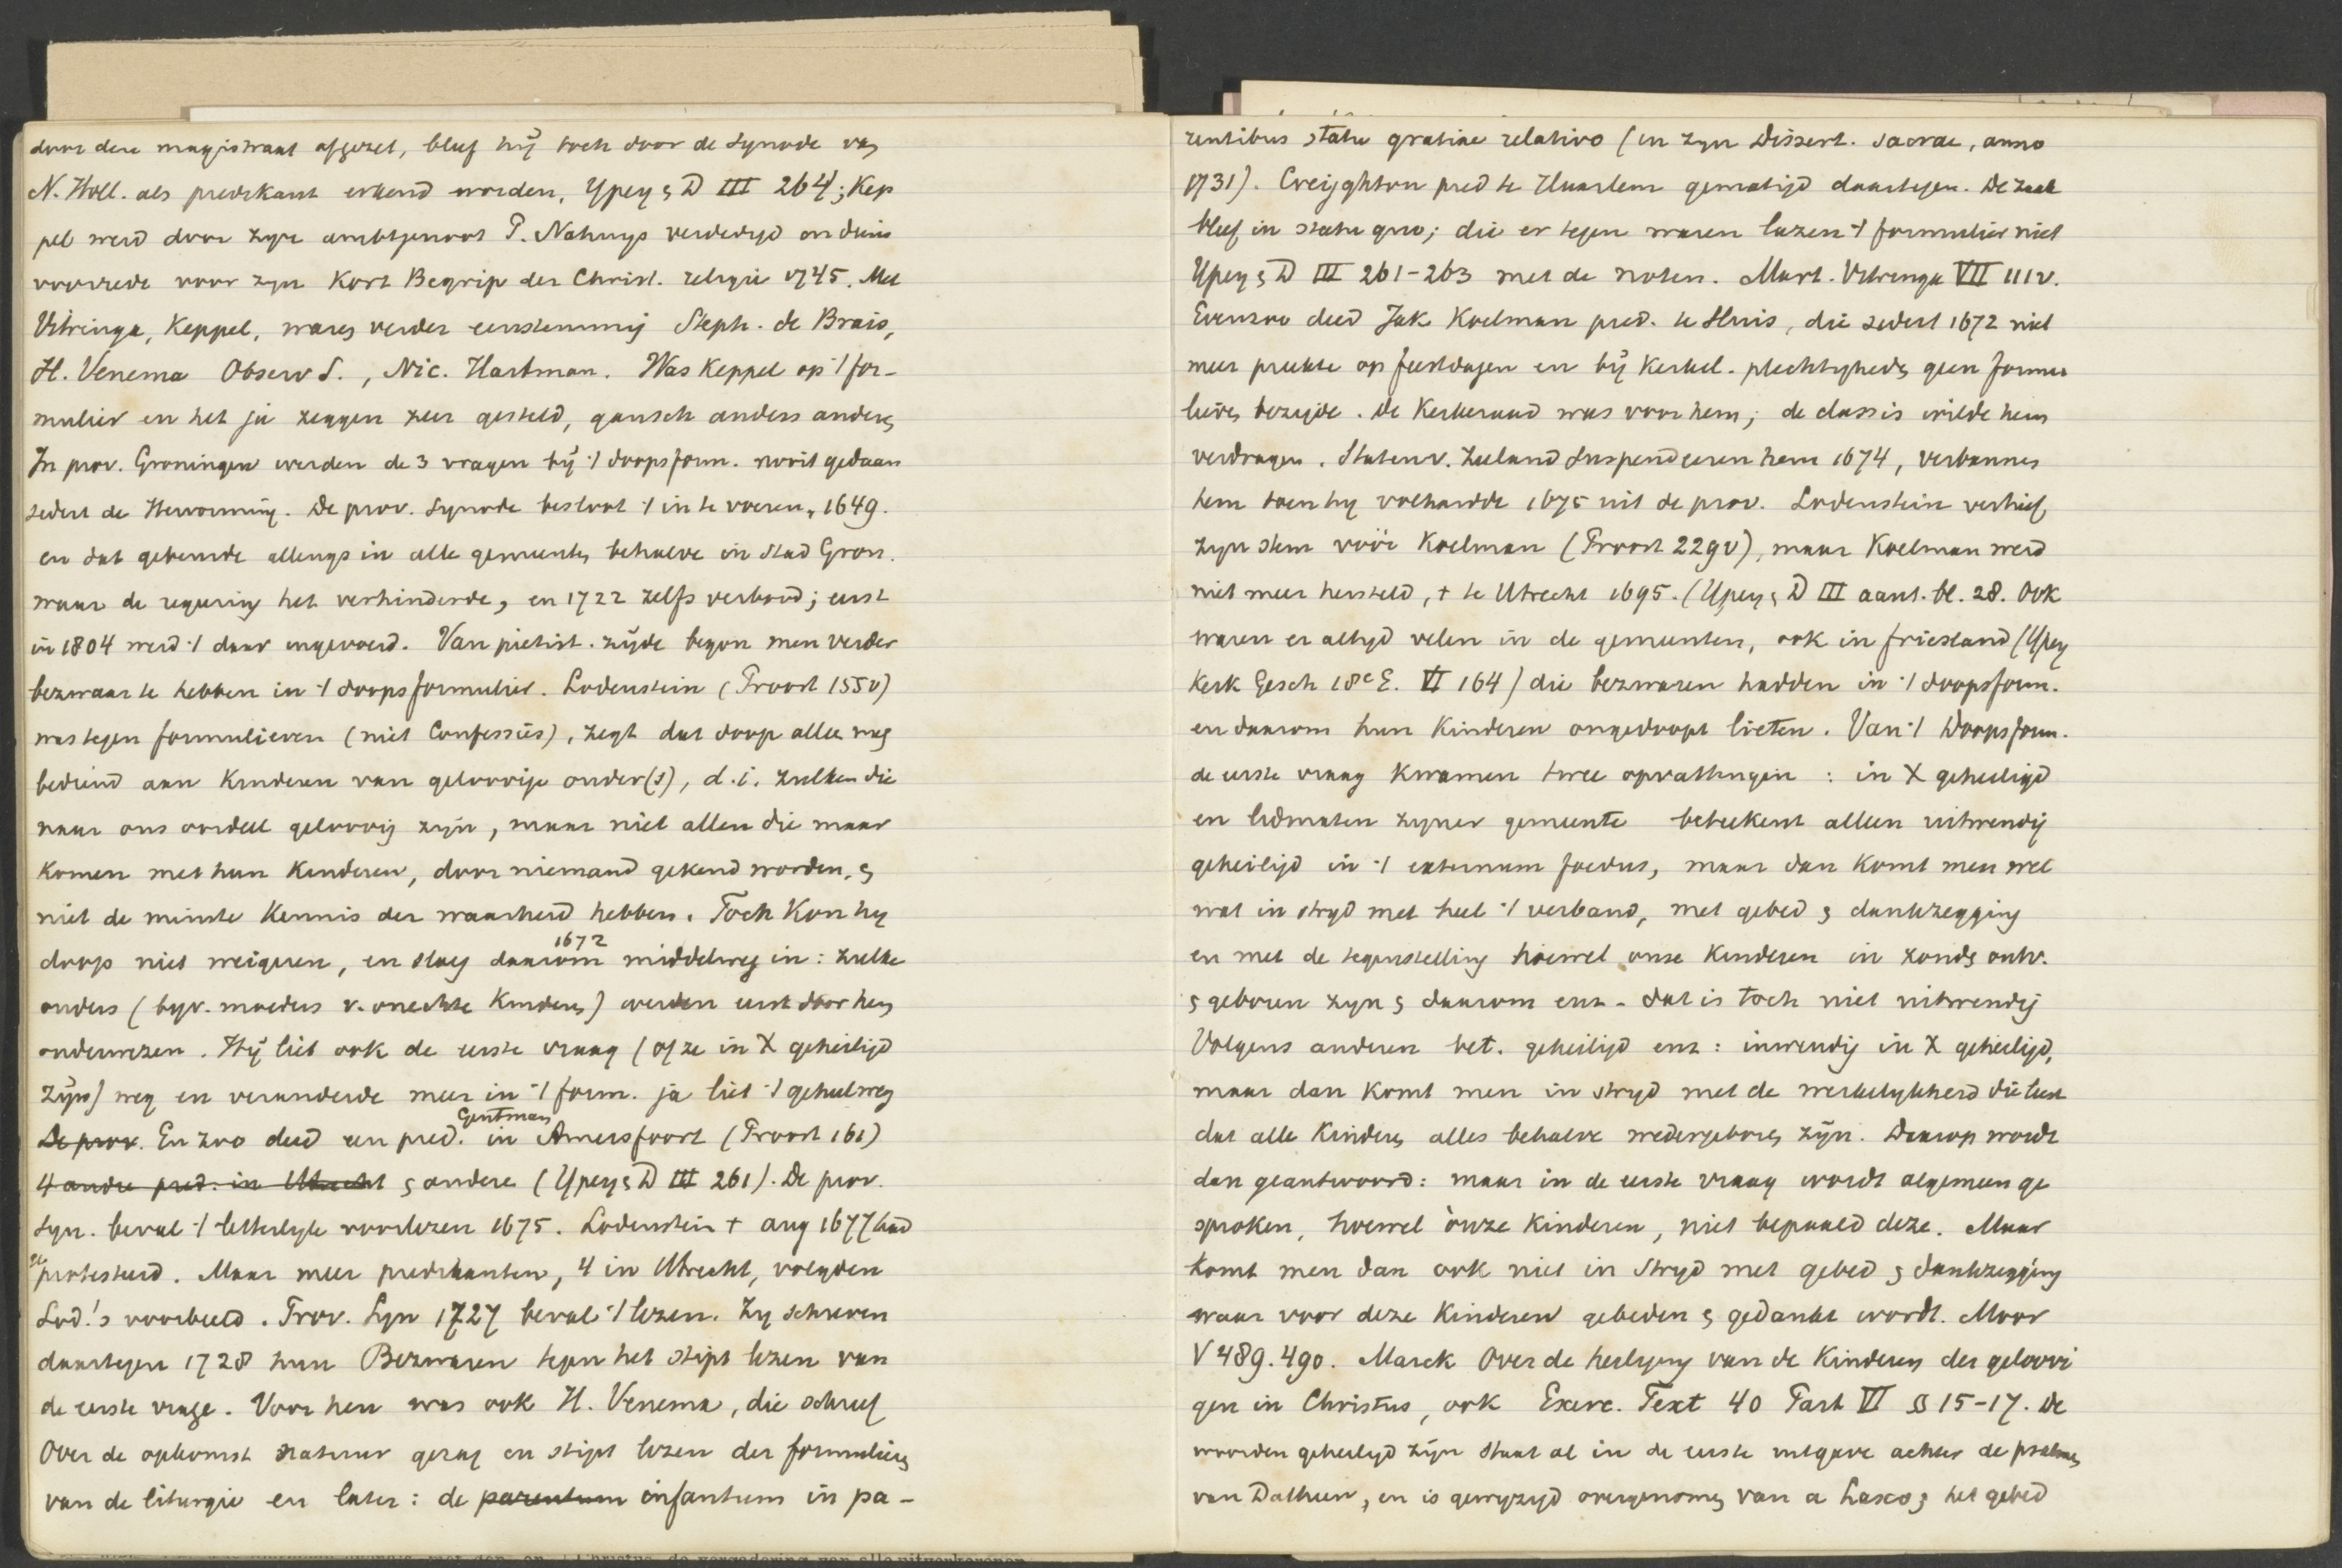 door den magistraat afgezet, bleef hij toch door de Synode van
N. Holl. als predikant erkend worden, Ypey & D III 264; Kep
pel werd door zijn ambtgenoot P. Nahuys verdedigd
voorrede voor zijn Kort Begrip der Christ. religie 1745. Met
Vitringa, Keppel, waren verder eenstemmig Steph. de Brais,
H. Venema Observ S., Nic. Hartman. Was Keppel op 't for-
mulier en het ja zeggen zeer gesteld, gansch anders anderen
In prov. Groningen werden de 3 vragen bij 't doopsform. nooit gedaan
sedert de Hervorming. De prov. Synode besloot 't in te voeren, 1649.
en dat gebeurde allengs in alle gemeenten behalve in stad Gron.
waar de regering het verhinderde, en 1722 zelfs verbood; eerst
in 1804 werd 't daar ingevoerd. Van pietist. zijde begon men verder
bezwaar te hebben in 't doopsformulier. Lodenstein (Proost 155v)
was tegen formulieren (niet Confessies), zegt dat doop alleen mag
bediend aan kinderen van geloovige ouder(s), d.i. zulken die
naar ons oordeel geloovig zijn, maar niet allen die maar
komen met hun kinderen, door niemand gekend worden, &
niet de minste kennis der waarheid hebben. Toch kon hij
doop niet weigeren, en sloeg daarom 1672 middelweg in: zulke
ouders (bijv. moeders v. onechte kinderen) werden eerst door hem
onderwezen. Hij liet ook de eerste vraag (of ze in X geheiligd
zijn) weg en veranderde meer in 't form. ja liet 't geheel weg
De prov. En zoo deed een pred. Gentman in Amersfoort (Proost 161)
4 andre pred. in Utrecht & andere (Ypey & D III 261). De prov.
Syn. beval 't letterlijk voorlezen 1675. Lodenstein † aug 1677 had
geprotesteerd. Maar meer predikanten, 4 in Utrecht, volgden
Lod.'s voorbeeld. Prov. Syn 1727 beval 't lezen. Zij schreven
daartegen 1728 hun Bezwaren tegen het stipt lezen van
de eerste vrage. Voor hen was ook H. Venema, die schreef
Over de opkomst natuur gezag en stipt lezen der formulieren
van de liturgie en later: de parentum infantum in pa-
rentibus statu gratiae relativo (in zijn Dissert. sacrae, anno
1731). Creijghton pred te Haarlem gematigd daartegen. De zaak
bleef in statu quo; die er tegen waren lazen 't formulier niet
Ypey & D III 261-263 met de noten. Mart. Vitringa VII 111v.
Evenzoo deed Jak Koelman pred. te Sluis, die sedert 1672 niet
meer preekte op feestdagen en bij kerkel. plechtigheden geen formu
lieren bezigde. De Kerkeraad was voor hem; de classis wilde hem
verdragen. Staten v. Zeeland suspendeeren hem 1674, verbannen
hem toen hij volhardde 1675 uit de prov. Lodenstein verhief
zijn stem vóór Koelman (Proost 229v), maar Koelman werd
niet meer hersteld, † te Utrecht 1695. (Ypey & D III aant. bl. 28. Ook
waren er altijd velen in de gemeenten, ook in friesland (Ypey
Kerk Gesch 18e E. VI 164) die bezwaren hadden in 't doopsform.
en daarom hun kinderen ongedoopt lieten. Van 't Doopsform.
de eerste vraag kwamen twee opvattingen: in X geheiligd
en lidmaten zijner gemeente beteekent alleen uitwendig
geheiligd in 't externum foedus, maar dan komt men wel
wat in strijd met heel 't verband, met gebed & dankzegging
en met de tegenstelling hoewel onse kinderen in zonde ontv.
& geboren zijn & daarom enz - dat is toch niet uitwendig
Volgens anderen bet. geheiligd enz: inwendig in X geheiligd,
maar dan komt men in strijd met de werkelijkheid die leert
dat alle kinderen alles behalve wedergeboren zijn. Daarop wordt
dan geantwoord: maar in de eerste vraag wordt algemeen ge
sproken, hoewel ònze kinderen, niet bepaald deze. Maar
komt men dan ook niet in strijd met gebed & dankzegging
waar voor deze kinderen gebeden & gedankt wordt. Moor
V 489.490. Marck Over de heiliging van de kinderen der geloovi
gen in Christus, ook Exerc. Text 40 Part VI §§ 15-17. De
woorden geheiligd zijn staat al in de eerste uitgave achter de psalmen
van Datheen, en is gewijzigd overgenomen van a Lasco; het gebed